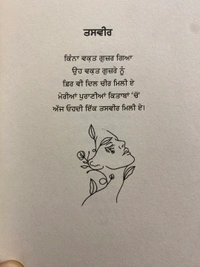 ਤਸਵੀਰ
ਕਿੰਨਾ ਵਕਤ ਗੁਜ਼ਰ ਗਿਆ
ਉਹ ਵਕਤ ਗੁਜ਼ਰੇ ਨੂੰ
ਫ਼ਿਰ ਵੀ ਦਿਲ ਚੀਰ ਮਿਲੀ ਏ
ਮੇਰੀਆਂ ਪੁਰਾਣੀਆਂ ਕਿਤਾਬਾਂ 'ਚੋਂ
ਅੱਜ ਓਹਦੀ ਇੱਕ ਤਸਵੀਰ ਮਿਲੀ ਏ।